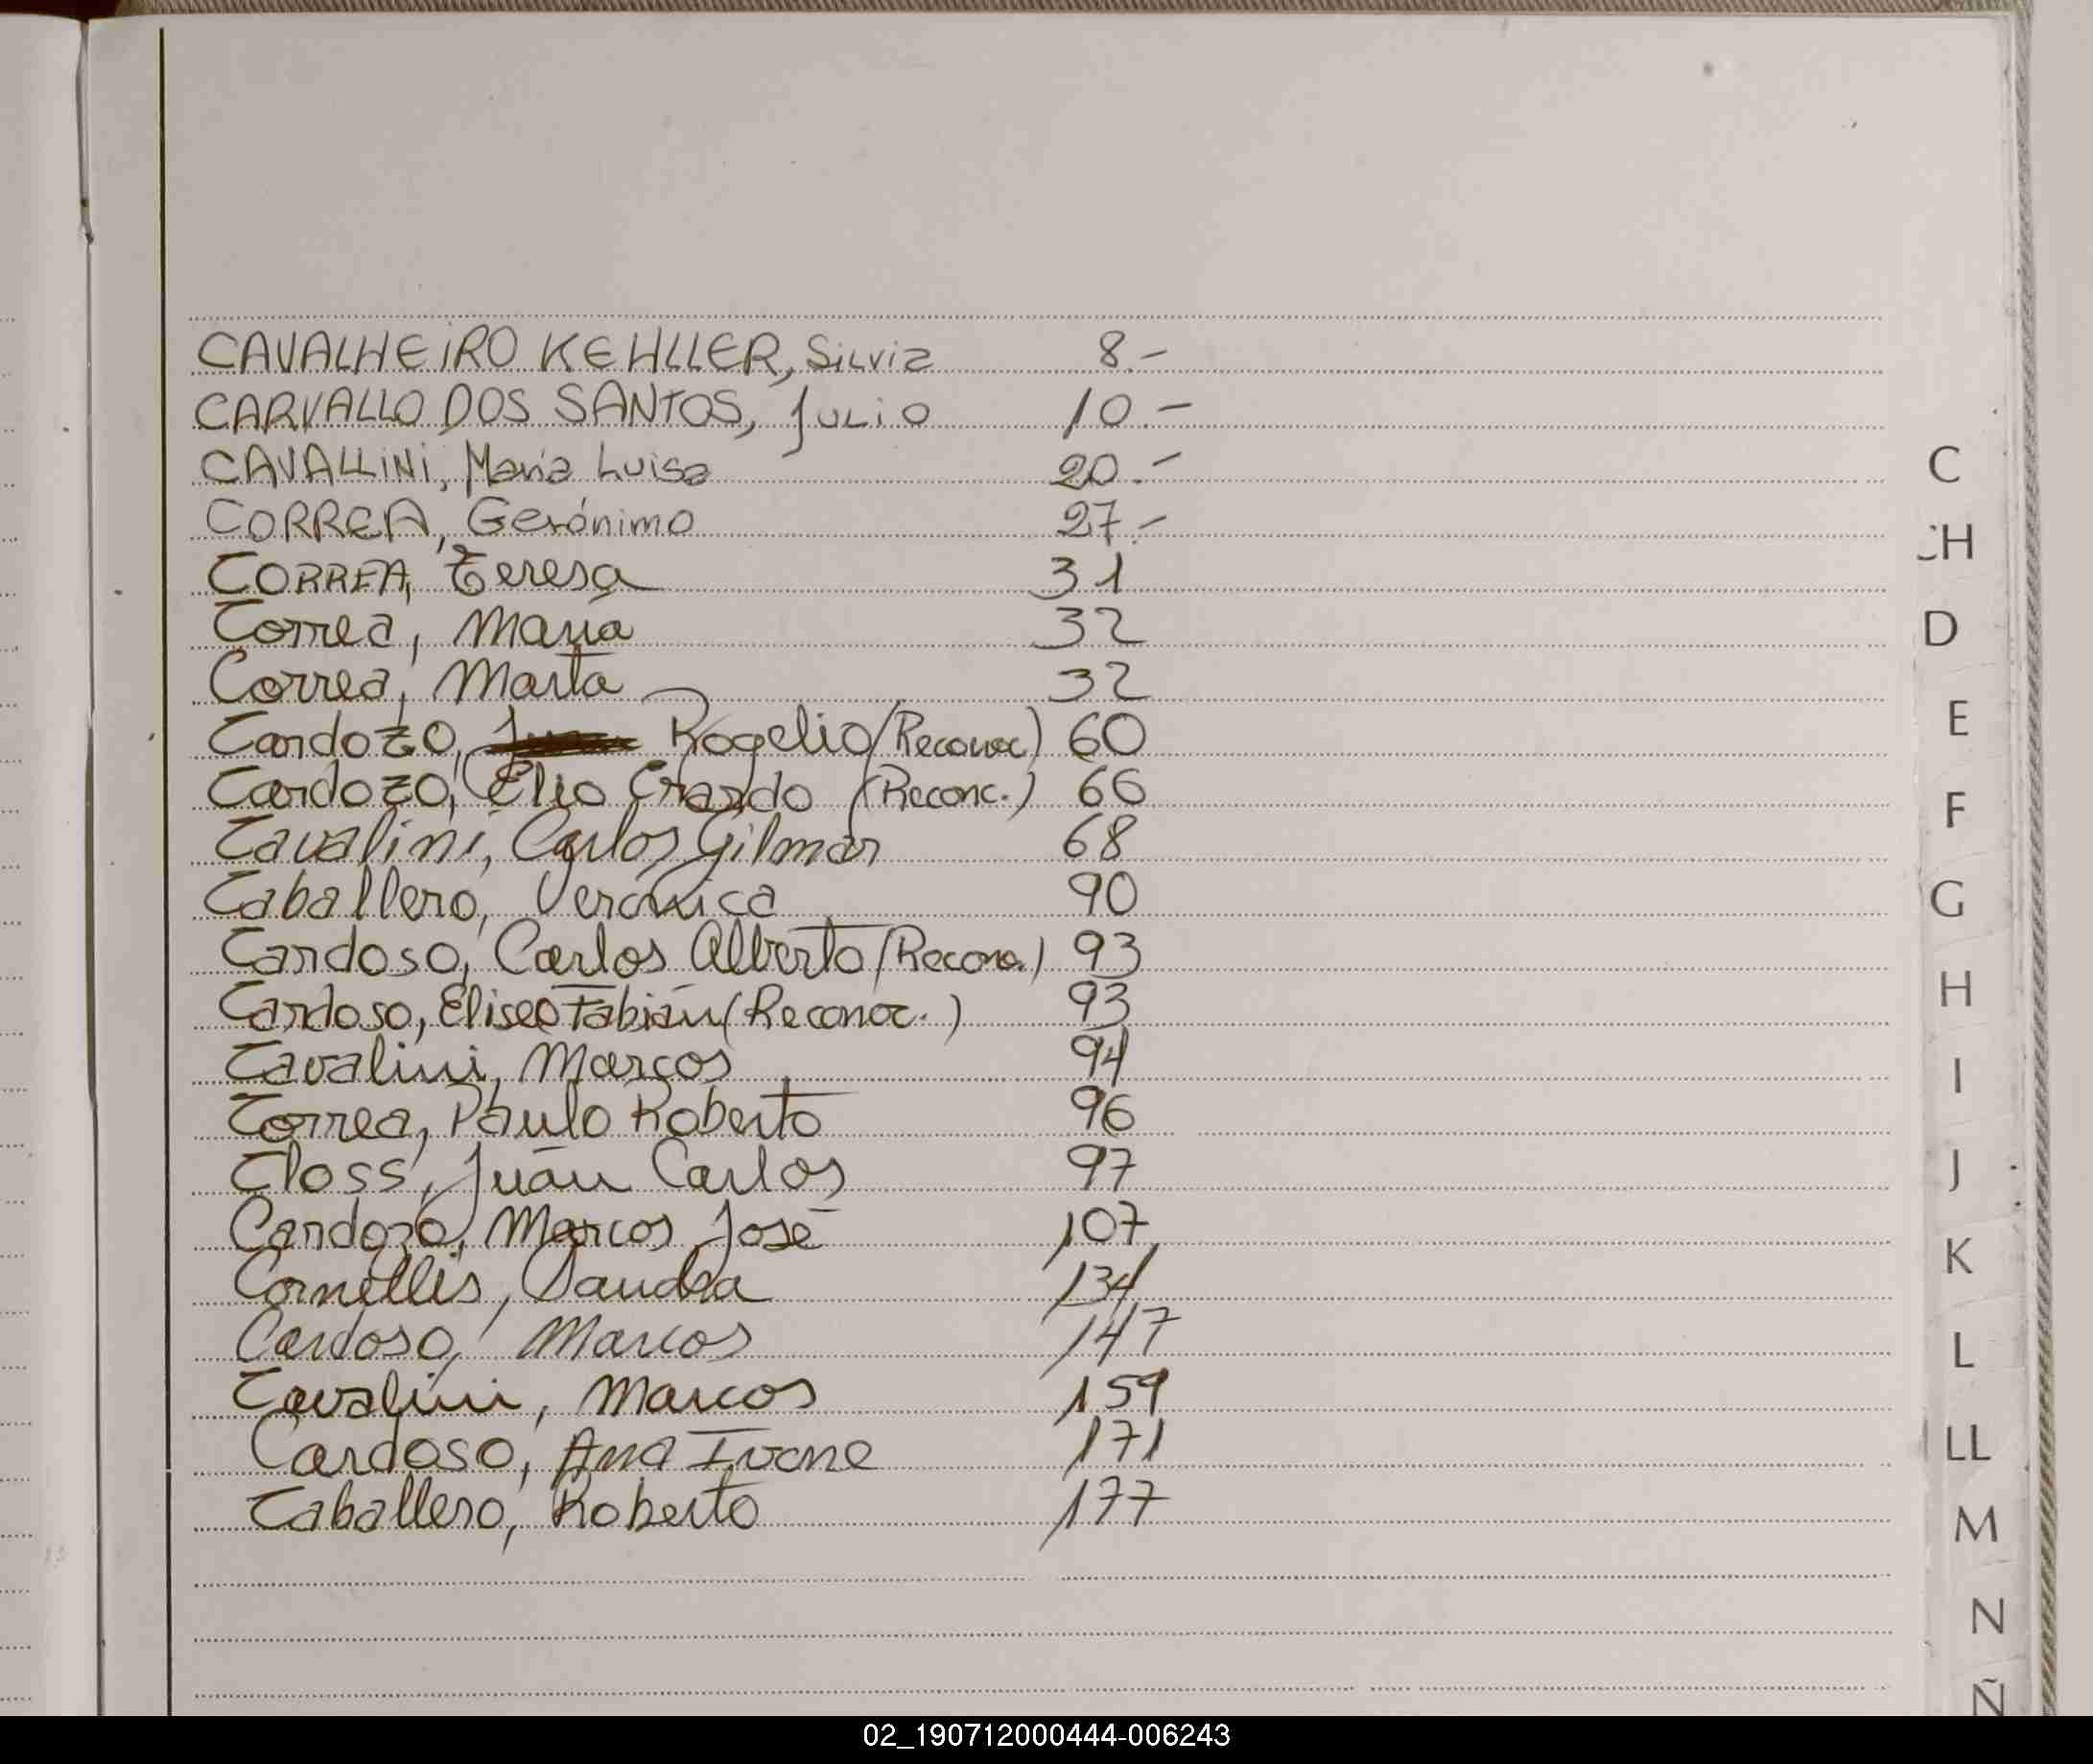 CAVALHEiRO KEHLLER, SiLViA 8.-
CARVALLO DOS SANTOS, JULiO 10.-
CAVALLiNi, María Luisa 20.-
CORREA, Gerónimo 27.-
CORREA, Teresa 31
Correa, María 32
Correa, Marta 32
Cardozo, Rogelio (Reconoc) 60
Cardozo, Elio Erardo (Reconc.) 66
Cavalini, Carlos Gilmar 68
Caballero, Verónica 90
Cardoso, Carlos Alberto (Recono.) 93
Cardoso, Eliseo Fabián (Reconoc.) 93
Cavalini, Marcos 94
Correa, Paulo Roberto 96
Closs, Juan Carlos 97
Cardozo, Marcos José 107
Cornellis, Sandra 134
Cardoso, Marcos 147
Cavalini, Marcos 159
Cardoso, Ana Ivone 171
Caballero, Roberto 177
C
CH
D
E
F
G
H
I
J
K
L
LL
M
N
Ñ
02_190712000444-006243